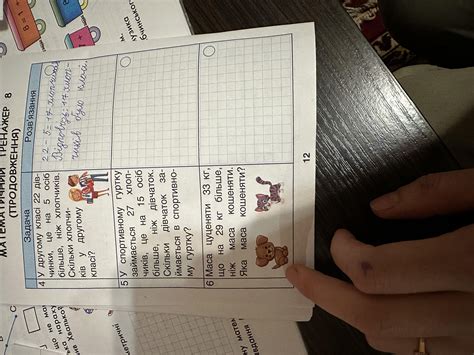 МАТЕМАТИЧНИЙ ТРЕНАЖЕР 8
(ПРОДОВЖЕННЯ)
Задача
Розв'язання
4 У другому класі 22 дів-
чинки, це на 5 осіб
більше, ніж хлопчиків.
Скільки хлопчи-
ків у другому
класі?
22-5=17 хлопчиків
Відповідь: 17 хлоп-
чиків
5 У спортивному гуртку
займається 27 хлоп-
чиків, це на 15 осіб
більше, ніж дівчаток.
Скільки дівчаток за-
ймається в спортивно-
му гуртку?
6 Маса цуценяти 33 кг,
що на 29 кг більше,
ніж маса кошеняти.
Яка маса кошеняти?
12
8 = 1 +